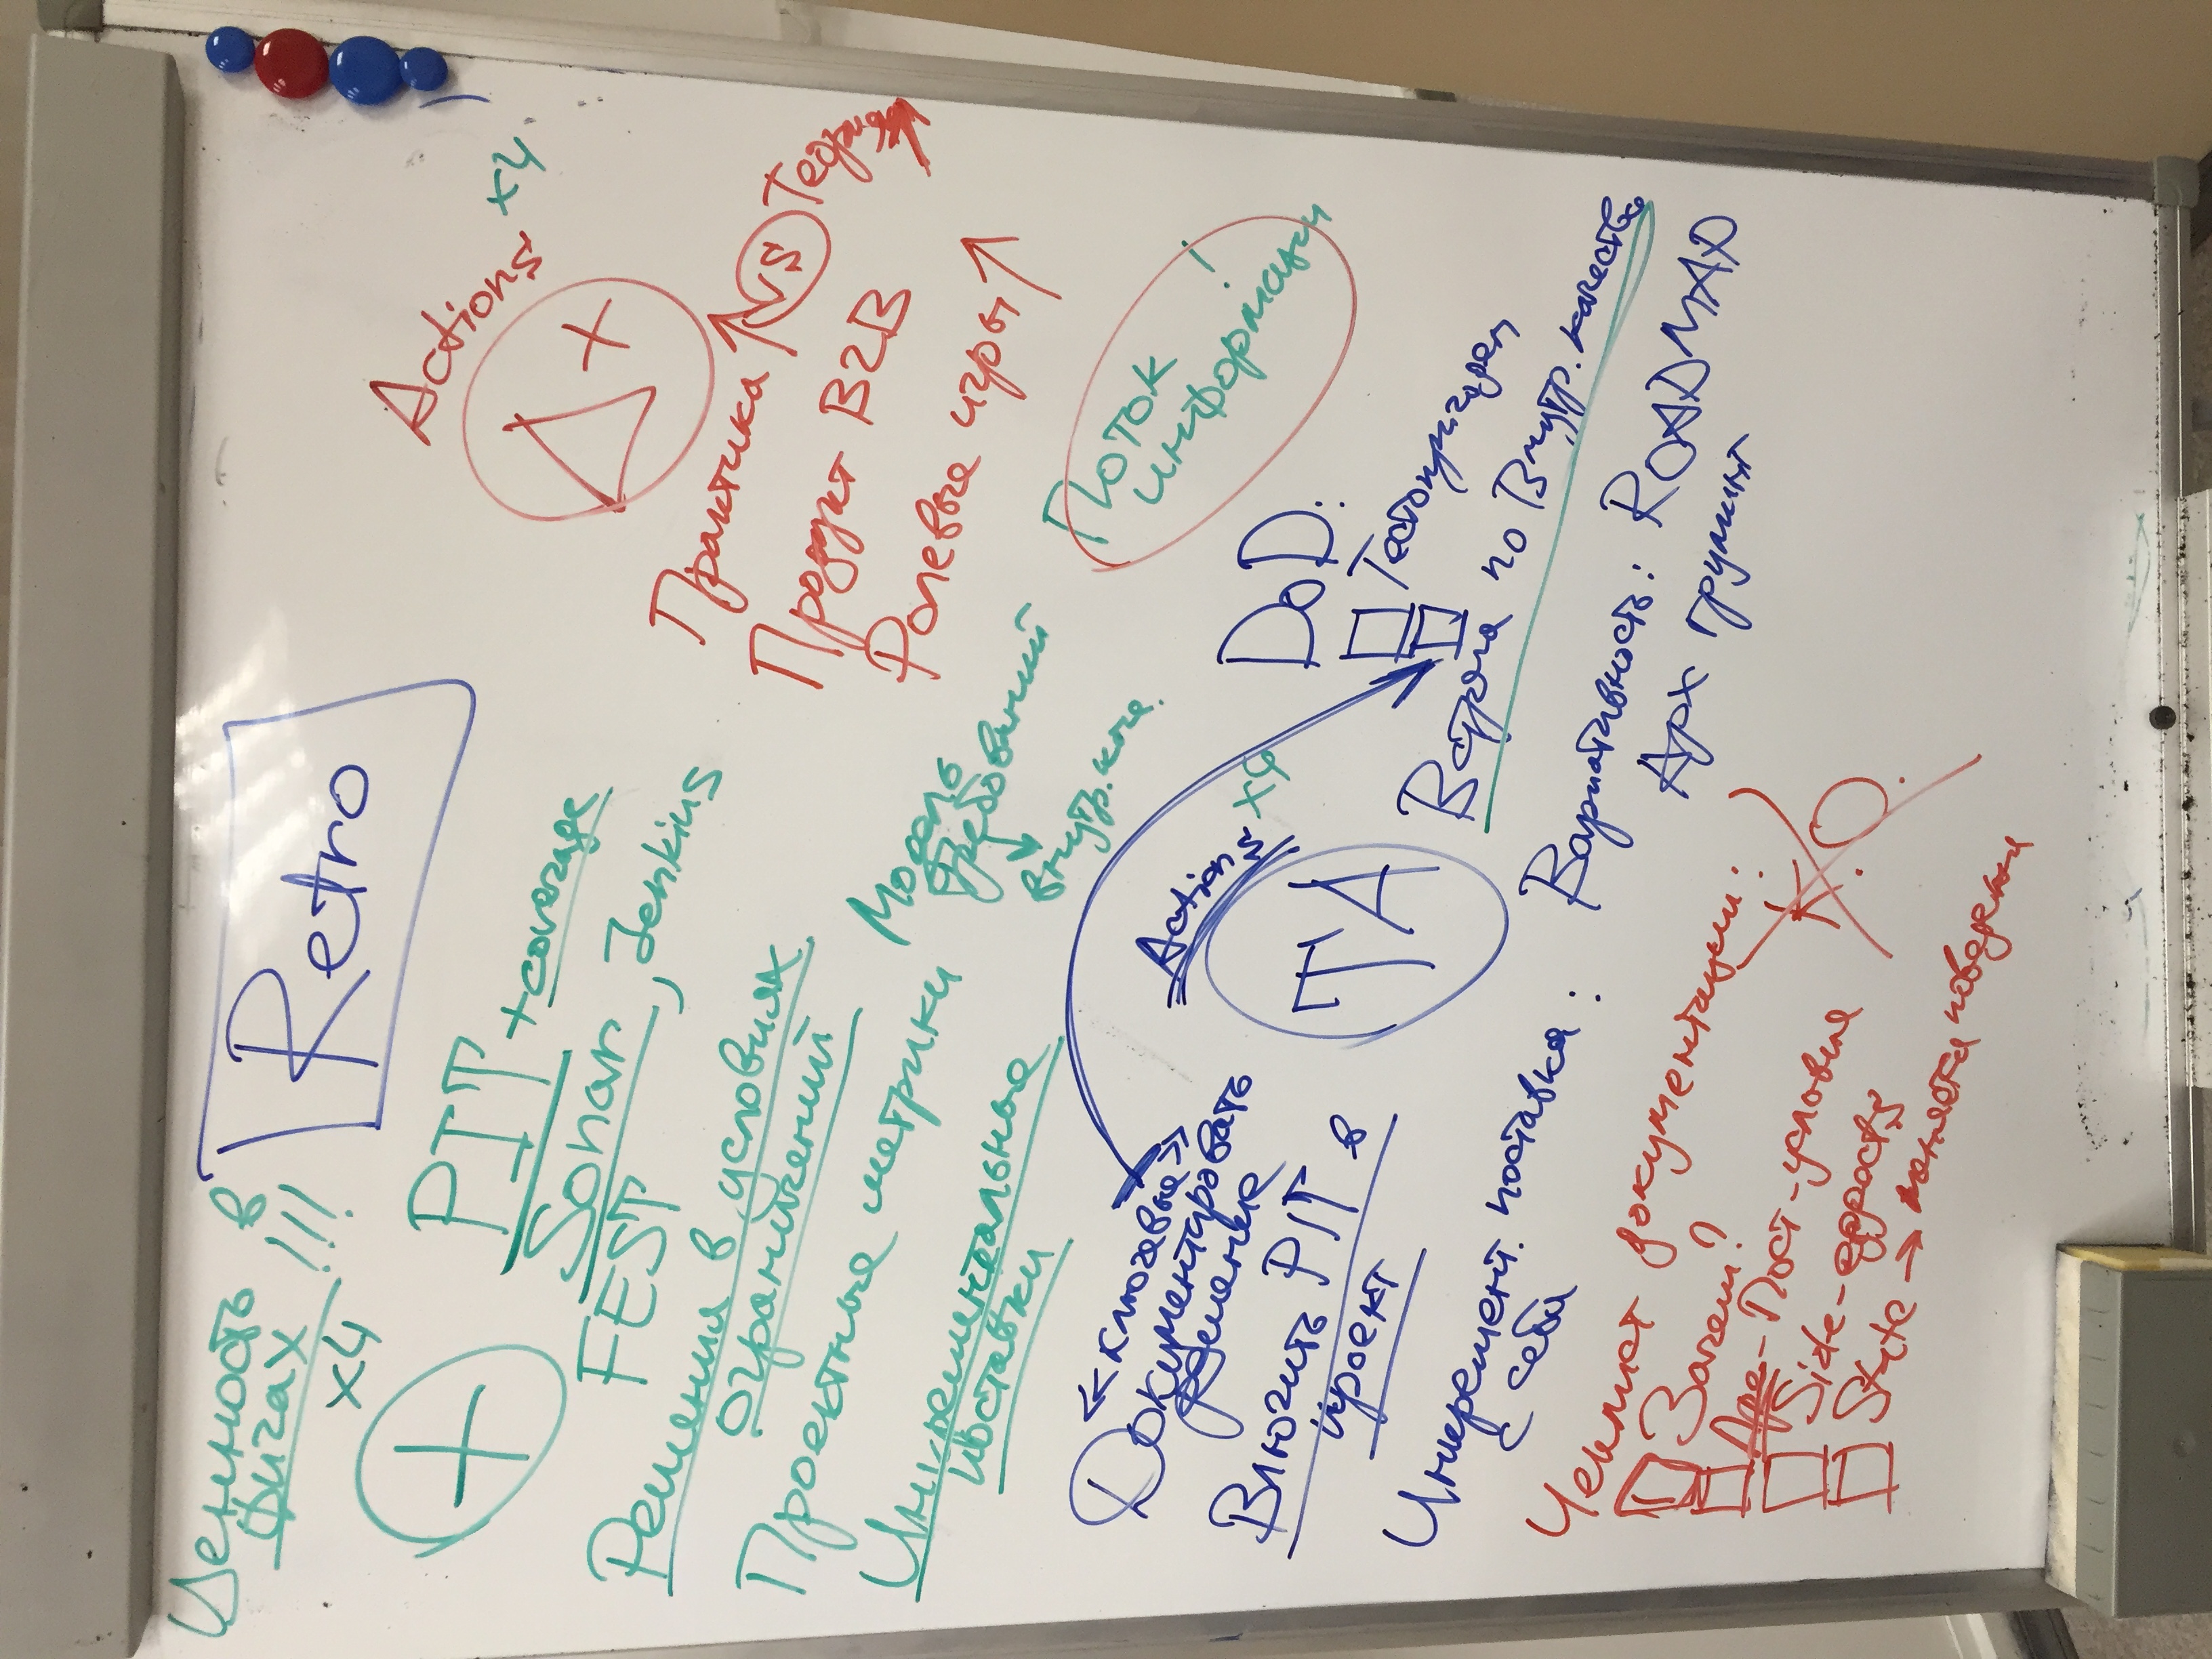 Retro
Ценность в
фичах !!!
x4
+
PIT + coverage
Sonar, Jenkins
FEST
Решения в условиях
ограничений
Проектные метрики
Инкрементальные
поставки
Модель
требований
внутр. кач.
Actions x4
Δ +
Практика ↑ vs Теория
Продукт B2B
Ролевые игры ↑
Поток
информации !
«ключевые»
Документировать
решение
Влючить PIT в
проект
Инкремент. поставка :
с себя
Actions x4
TA
DoD:
Тестопригоден
Встреча по Внутр. качеству
Вариативность: ROADMAP
Арх груминг
Чеклист документации:
Зачем?
Пре-Пост-условия
Side-effects
State → меняется поведения
К.О.